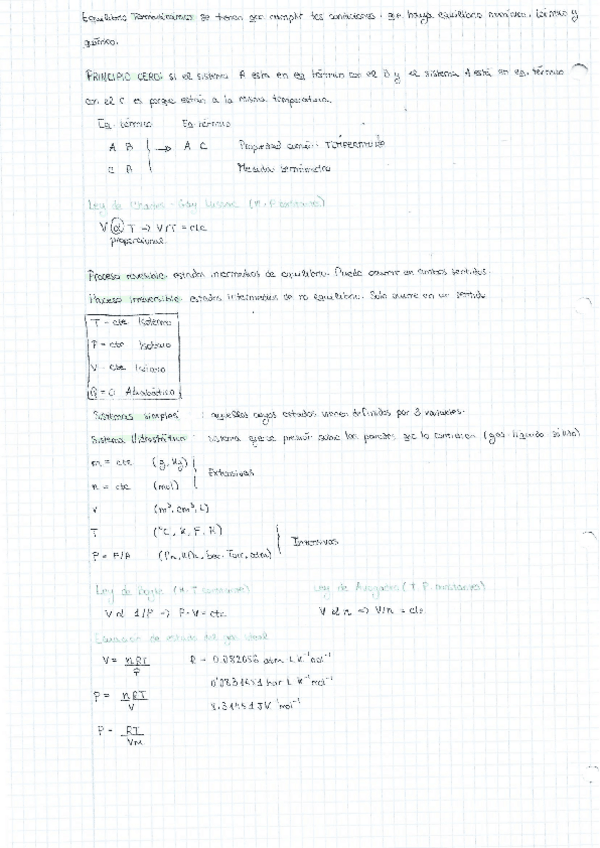 Equilibrio Termodinámico se tienen que cumplir tres condiciones, que haya equilibrio mecánico, térmico y
químico.
PRINCIPIO CERO: si el sistema A esta en eq térmico con el B y el sistema A está en eq. térmico
con el C es porque están a la misma temperatura.
Eq. térmico Eq térmico
A B → A C Propiedad común: TEMPERATURA
C B Medida: termómetro
Ley de Charles - Gay Lussac (n, P constantes)
V α T → V/T = cte
proporcional
Proceso reversible: estados intermedios de equilibrio. Puede ocurrir en ambos sentidos.
Proceso irreversible: estados intermedios de no equilibrio. Solo ocurre en un sentido
T - cte Isotermo
P - cte Isobaro
V - cte Isócoro
Q = 0 Adiabático
Sistemas simples: aquellos cuyos estados vienen definidos por 3 variables.
Sistema Hidrostático: sistema que ejerce presión sobre las paredes que lo contienen (gas, líquido, sólido)
m = cte (g, Kg)
Extensivas
n = cte (mol)
V (m³, cm³, L)
T (°C, K, F, R)
Intensivas
P = F/A (Pa, N/m, bar, Torr, atm)
Ley de Boyle (n, T constantes) Ley de Avogadro (T, P constantes)
V α 1/P → P·V = cte V α n => V/n = cte
Ecuación de estado del gas ideal
V = nRT/P R = 0.082056 atm L K⁻¹ mol⁻¹
0'0831451 bar L K⁻¹ mol⁻¹
P = nRT/V 8.31451 J K⁻¹ mol⁻¹
P = RT/Vm